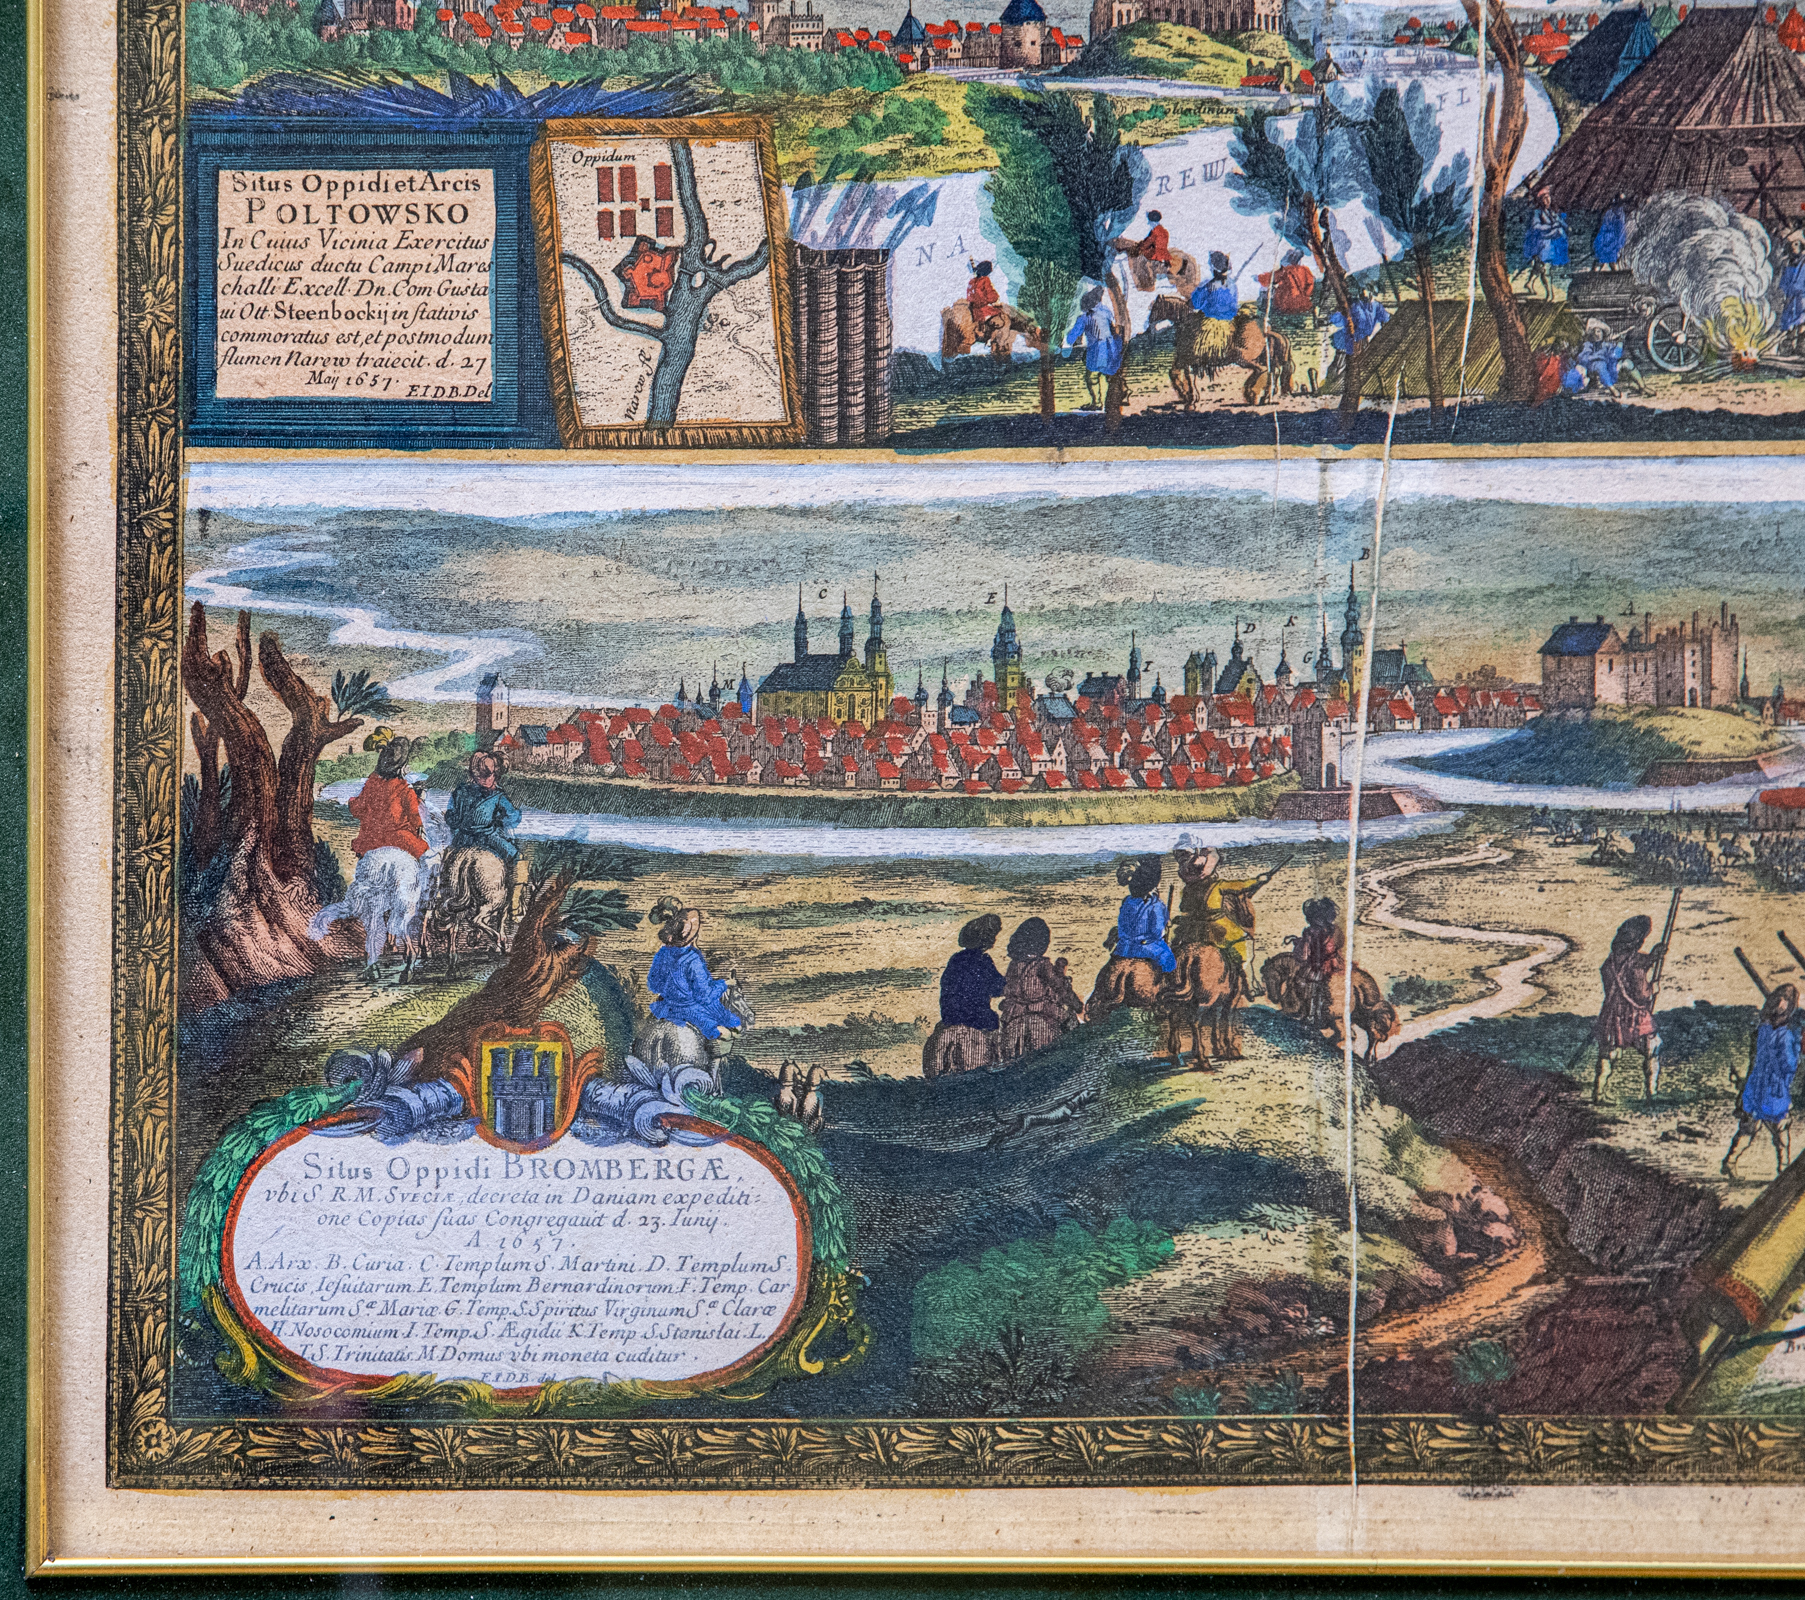 Situs Oppidi et Arcis
POLTOWSKO
In Cuius Vicinia Exercitus
Suedicus ductu Campi Mares
challi Excell. Dn. Com Gusta
ui Ott. Steenbockij in stativis
commoratus est, et postmodum
flumen Narew traiecit. d. 27
Maij 1657.
E.I.D.B. Del
Oppidum
Narew fl
NA
REW
FL
C
E
B
A
D
K
I
G
M
Situs Oppidi BROMBERGÆ,
vbi S. R. M. SVECIÆ, decreta in Daniam expediti=
one Copias suas Congregauit d. 23. Iunij.
A 1657.
A. Arx. B. Curia. C. Templum S. Martini. D. Templum S.
Crucis, Iesuitarum. E. Templum Bernardinorum. F. Temp. Car
melitarum S.æ Mariæ. G. Temp. S. Spiritus Virginum S.æ Claræ
H. Nosocomium. I. Temp. S. Ægidii. K. Temp. S. Stanislai. L.
T. S. Trinitatis. M. Domus vbi moneta cuditur.
E.I.D.B. del.